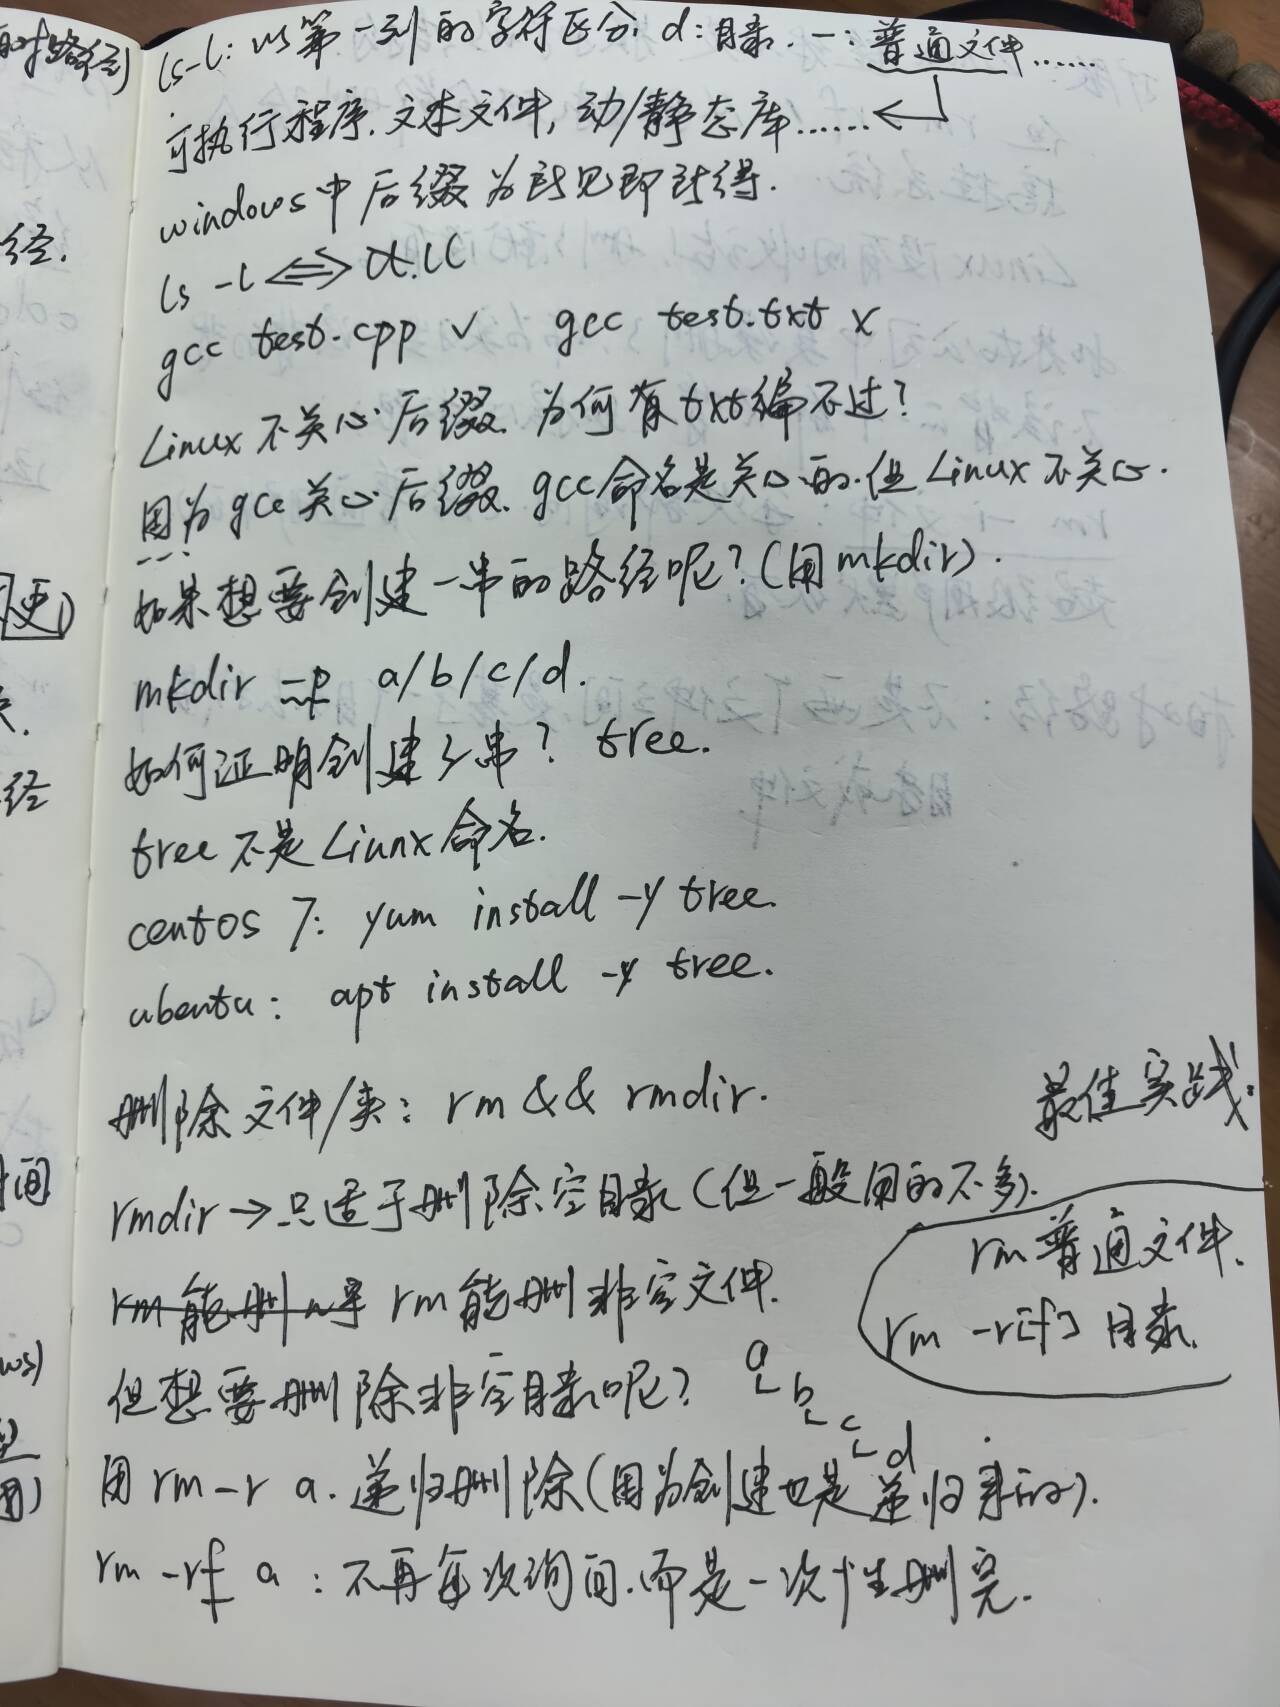 ls-l: 以第一列的字符区分. d:目录. -: 普通文件……
可执行程序. 文本文件, 动/静态库……
windows中后缀为所见即所得.
ls -l <=> ll
gcc test.cpp ✓ gcc test.txt ×
Linux不关心后缀. 为何有txt编不过?
因为gcc关心后缀. gcc命名是关心的. 但Linux不关心.
如果想要创建一串的路径呢? (用mkdir).
mkdir -p a/b/c/d.
如何证明创建了串? tree.
tree不是Liunx命名.
centos 7: yum install -y tree.
ubentu: apt install -y tree.
删除文件/夹: rm && rmdir.
最佳实践:
rmdir→只适于删除空目录(但一般用的不多).
rm普通文件.
rm能删非空文件.
rm -r[f] 目录.
但想要删除非空目录呢?
a
b
c
d
用rm-r a. 递归删除(因为创建也是递归来的).
rm -rf a : 不再每次询问. 而是一次性删完.
对路径)
经.
更)
经
间
ws)